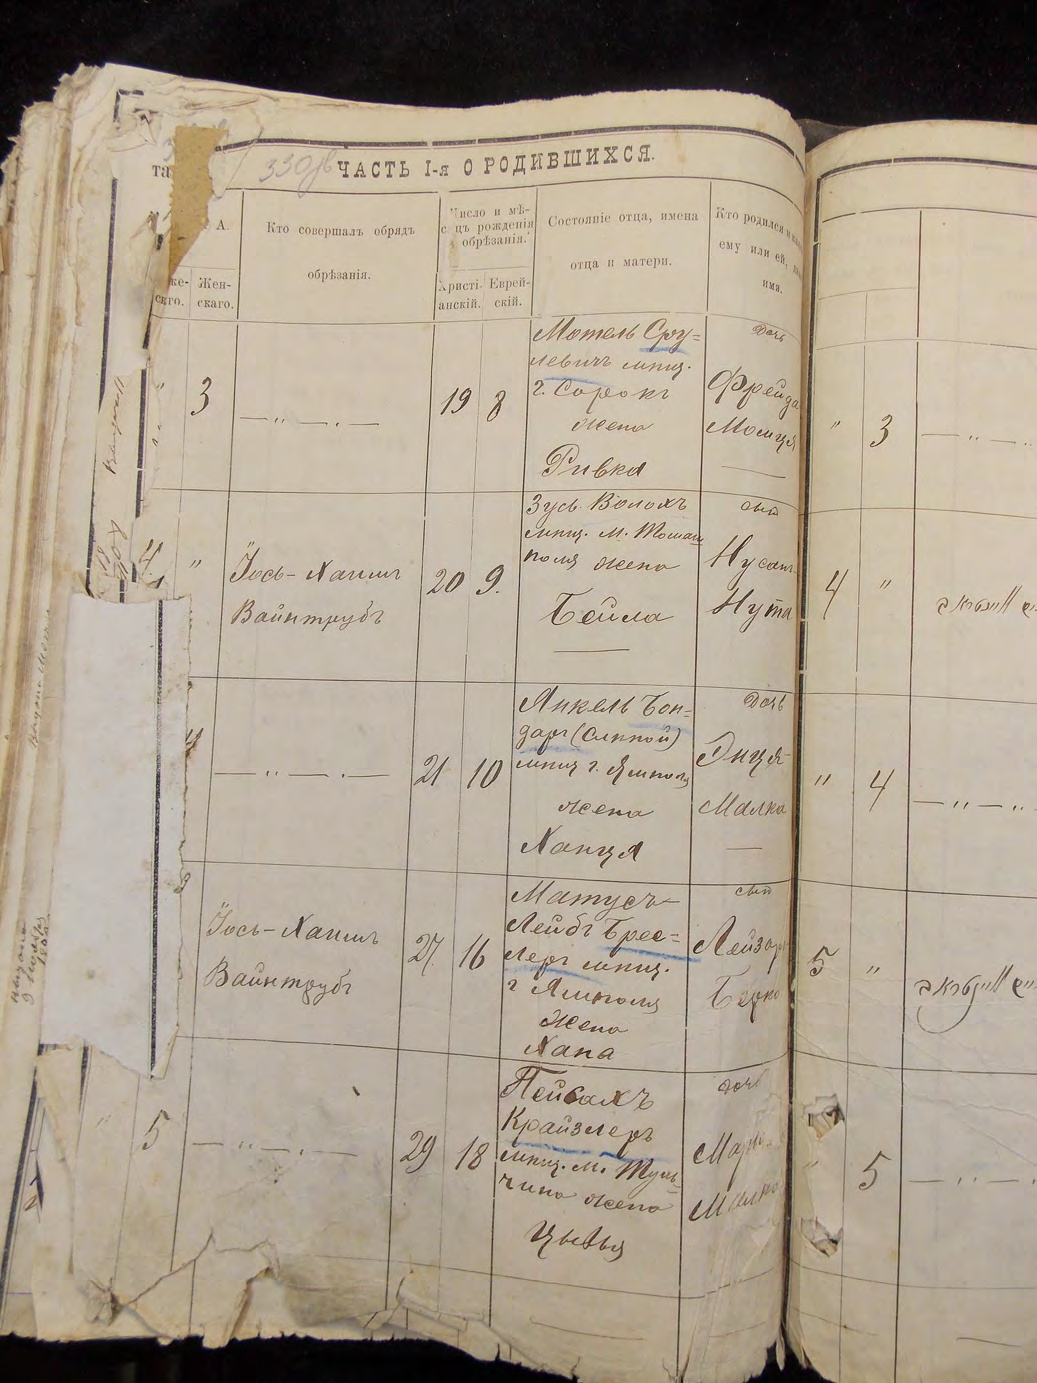 330
ЧАСТЬ I-я О РОДИВШИХСЯ.
Кто совершалъ обрядъ
обрѣзанія.
Число и мѣ-
сяцъ рожденія
и обрѣзанія.
Христі-
анскій.
Еврей-
скій.
Состояніе отца, имена
отца и матери.
Кто родился и
ему или ей,
имя.
Жен-
скаго.
3
— " — . —
19
8
Мотель Сру=
левичъ мѣщ.
г. Сорокъ
жена
Ривка
Дочь
Фрейда
4
"
Іось-Хаимъ
Вайнтрубъ
20
9.
Зусь Волохъ
мѣщ. м. Томаш
поля жена
Бейла
сынъ
Нусонъ
Нута
— " — . —
21
10
Янкель Бон=
даръ (слѣпой)
мѣщ г. Ямполя
жена
Ханця
Дочь
Энця
Малка
Іось-Хаимъ
Вайнтрубъ
27.
16
Матусъ-
Лейбъ Брес=
леръ мѣщ.
г Ямполя
Жена
Хана
сынъ
Лейзоръ
Берко
5
— " — . —
29
18
Пейсахъ
Крайзлеръ
мѣщ. м. Туль-
чина жена
Цывья
дочь
" 3 — " — .
4 "
" 4 — " — "
5 "
5 — " — .